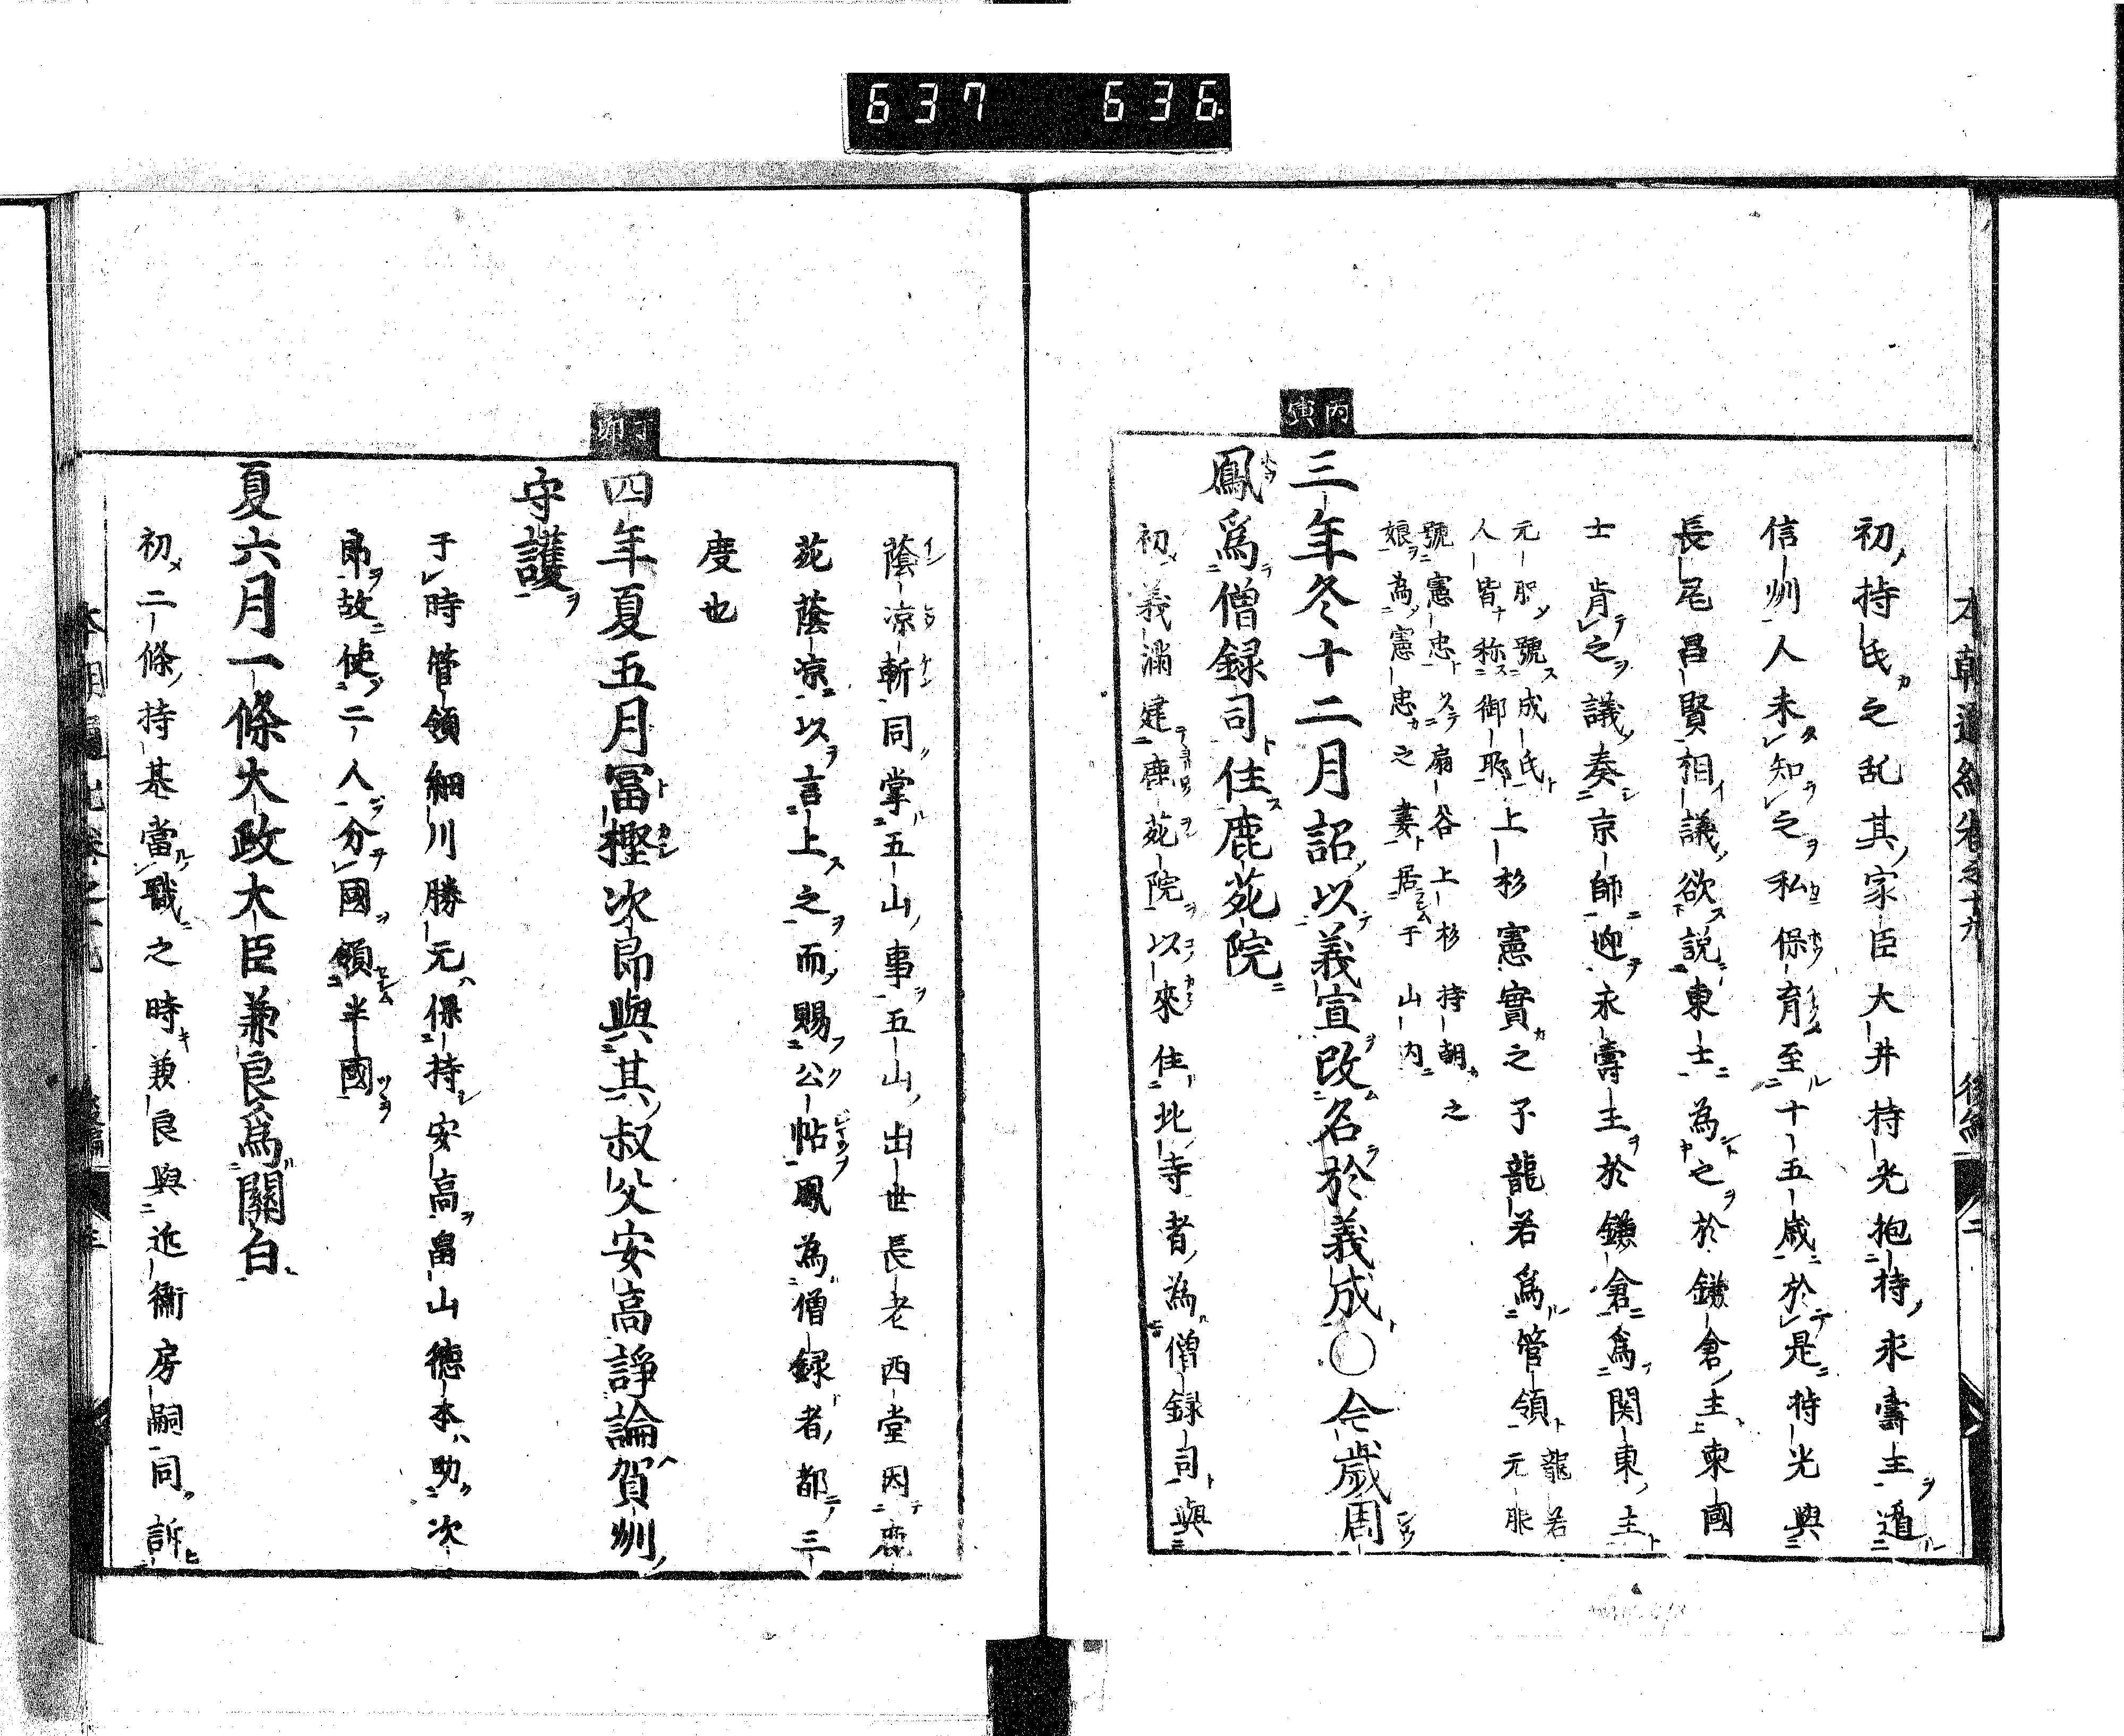 637 636
本朝通紀卷之十九 後編 二
初持氏之乱其家臣大井持光抱持永壽主遁
信州人未知之私保育至十五歳於是持光與
長尾昌賢相議欲説東士為之於鎌倉主東國
士肯之議奏京師迎永壽主於鎌倉爲関東主
元服號成氏上杉憲實之子龍若爲管領龍若元服
人皆称御所
號憲忠久扇谷上杉持朝之
娘為憲忠之妻居于山内
丙寅
三年冬十二月詔以義宣改名於義成○今歲周
鳳爲僧録司住鹿苑院
初義滿建鹿苑院以來住北寺者為僧録司與
蔭凉軒同掌五山事五山出世長老西堂因鹿
苑蔭凉以言上之而賜公帖鳳為僧録者都三
度也
丁卯
四年夏五月冨樫次郎與其叔父安高諍論賀州
守護
于時管領細川勝元保持安高畠山德本助次
郎故使二人分國領半國
夏六月一條大政大臣兼良爲關白
初二條持基當職之時兼良與近衛房嗣同訴